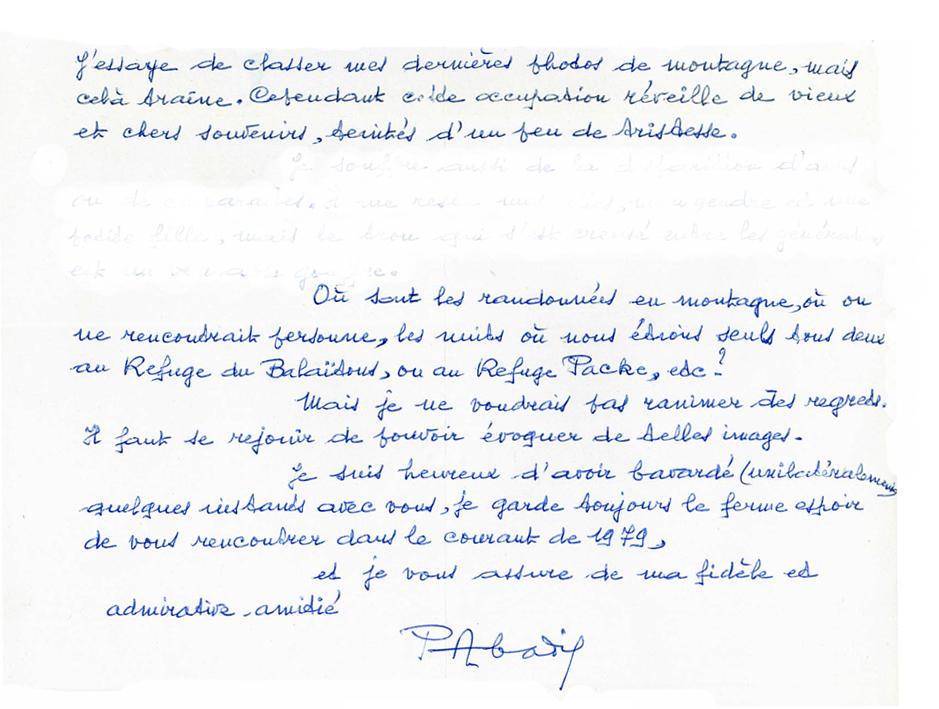 J'essaye de classer mes dernières photos de montagne, mais
celà traîne. Cependant cette occupation réveille de vieux
et chers souvenirs, teintés d'un peu de tristesse.
Je souffre aussi de la disparition d'amis
ou de camarades. Il me reste mes un gendre et une
petite fille, mais le trou qui s'est creusé entre les générations
est un
Où sont les randonnées en montagne, où on
ne rencontrait personne, les nuits où nous étions seuls tous deux
au Refuge du Balaïtous, ou au Refuge Packe, etc ?
Mais je ne voudrais pas ranimer des regrets.
Il faut se rejouir de pouvoir évoquer de telles images.
Je suis heureux d'avoir bavardé (unilatéralement)
quelques instants avec vous, je garde toujours le ferme espoir
de vous rencontrer dans le courant de 1979,
et je vous assure de ma fidèle et
admirative amitié
PAbadie